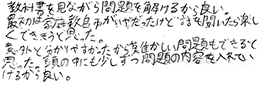 教科書を見ながら問題を解けるから良い。
最初は家庭教師がいやだったけど話を聞いたら楽し
くできそうと思った。
意外と分かりやすかったから難しい問題もできると
思った。頭の中にも少しずつ問題の内容を入れてい
けるから良い。